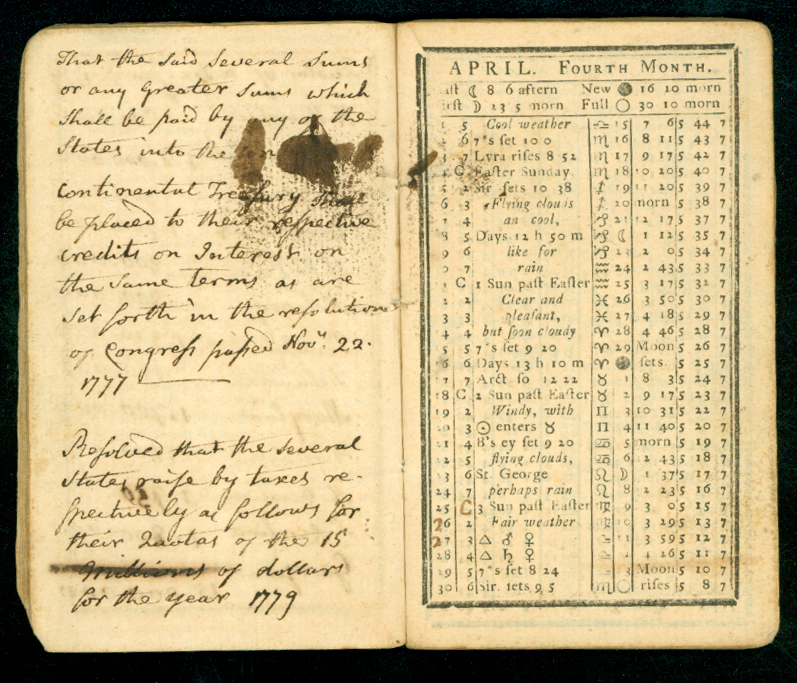 That the said several sums
or any Greater sums which
shall be paid by any or the
States into the
Continental Treasury shall
be placed to their respective
credits on Interest on
the same terms as are
set forth in the resolution
of Congress passed Novr. 22.
1777
Resolved that the several
States raise by taxes re-
spectively as follows for
their Quotas of the 15
millions of dollars
for the year 1779
APRIL. FOURTH MONTH.
☾ 8 6 aftern New ● 16 10 morn
☽ 23 5 morn Full ○ 30 10 morn
5 Cool weather ♎ 15 7 6 5 44 7
6 7*s set 10 0 ♏ 16 8 11 5 43 7
7 Lyra rises 8 52 ♏ 17 9 17 5 42 7
C Easter Sunday ♏ 18 10 20 5 40 7
2 Sir. sets 10 38 ♐ 19 11 20 5 39 7
6 3 Flying clouds ♐ 20 morn 5 38 7
4 an cool, ♑ 21 12 17 5 37 7
8 5 Days 12 h 50 m ♑ ☾ 1 12 5 35 7
9 6 like for 2 0 5 34 7
7 rain ♒ 24 2 43 5 33 7
C 1 Sun past Easter ♒ 25 3 17 5 32 7
2 Clear and ♓ 26 3 50 5 30 7
3 pleasant, ♓ 27 4 18 5 29 7
4 but soon cloudy ♈ 28 4 46 5 28 7
5 7*s set 9 20 ♈ 29 Moon 5 26 7
6 Days 13 h 10 m ♈ ● sets 5 25 7
7 Arct so 12 22 ♉ 1 8 3 5 24 7
18 C 2 Sun past Easter ♉ 2 9 17 5 23 7
19 2 Windy, with ♊ 3 10 31 5 22 7
3 ☉ enters ♉ ♊ 4 11 40 5 20 7
4 B's ey set 9 20 ♋ 5 morn 5 19 7
5 flying clouds, ♋ 6 2 43 5 18 7
6 St. George ♌ ☽ 1 37 5 17 7
24 7 perhaps rain ♌ 8 2 23 5 16 7
25 C 3 Sun past Easter ♍ 9 3 0 5 15 7
26 2 Fair weather ♍ 10 3 29 5 13 7
27 3 △ ♂ ♀ ♎ 3 59 5 12 7
28 4 △ ♄ ♀ ♎ 4 26 5 11 7
29 5 7*s set 8 24 Moon 5 10 7
30 6 Sir. sets 9 5 ♏ ○ rises 5 8 7